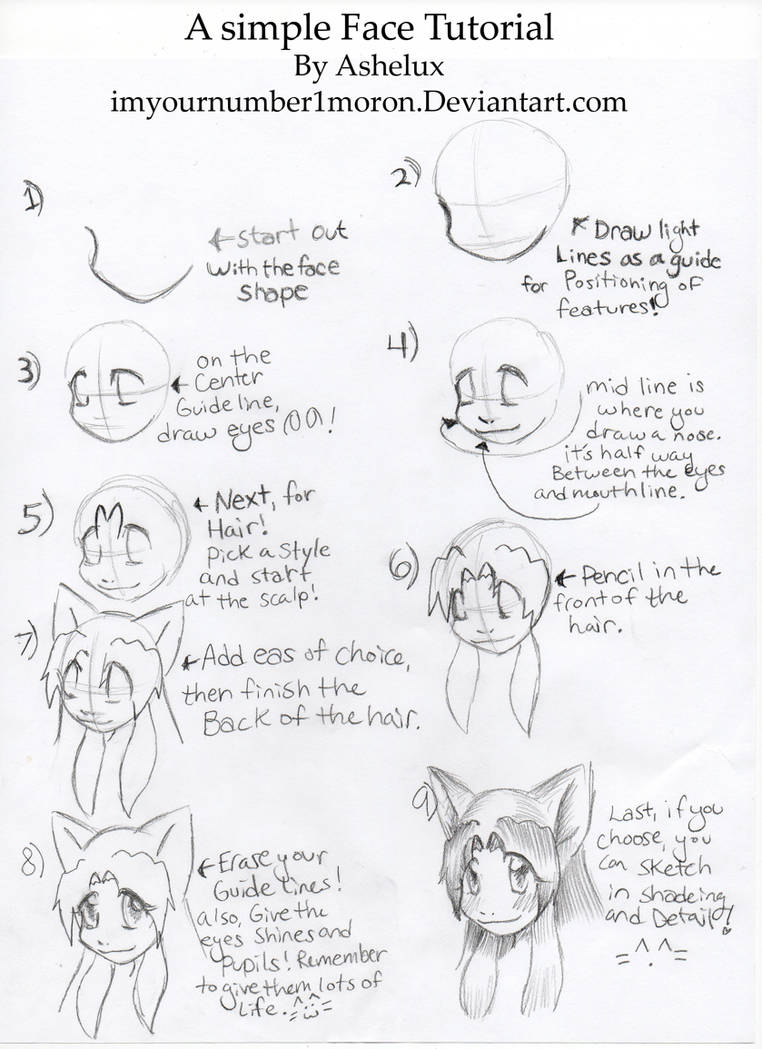 A simple Face Tutorial
By Ashelux
imyournumber1moron.Deviantart.com
1)
←start out
with the face
shape
2)
Draw light
Lines as a guide
for Positioning of
features!
3)
on the
Center
Guideline,
draw eyes !
4)
mid line is
where you
draw a nose.
it's half way
Between the eyes
and mouthline.
5)
←Next, for
Hair!
pick a style
and start
at the scalp!
6)
←Pencil in the
front of the
hair.
7)
←Add eas of choice,
then finish the
Back of the hair.
8)
←Erase your
Guide lines!
also, Give the
eyes Shines and
Pupils! Remember
to give them lots of
Life. =^.^=
9)
Last, if you
choose, you
can sketch
in shadeing
and Detail!
=^.^=